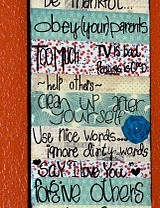 be thankful...
obey (your) parents
TOO MUCH TV IS bad
~help others~
clean up after
yourself
Use nice words....
ignore dirty words
♥ SAY "I love you" ♥
forgive others